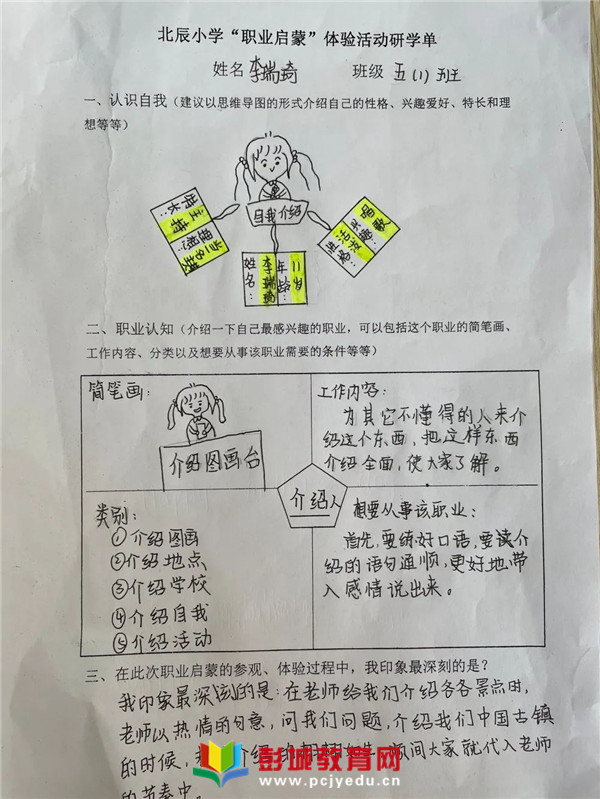 北辰小学“职业启蒙”体验活动研学单
姓名 李瑞琦 班级 五(1)班
一、认识自我（建议以思维导图的形式介绍自己的性格、兴趣爱好、特长和理
想等等）
自我介绍
特长:
主持
理想:
姓名:
李瑞琦
年龄:
11岁
唱歌
兴趣:
活泼
性格:
二、职业认知（介绍一下自己最感兴趣的职业，可以包括这个职业的简笔画、
工作内容、分类以及想要从事该职业需要的条件等等）
简笔画:
介绍图画台
工作内容:
为其它不懂得的人来介
绍这个东西，把这样东西
介绍全面，使大家了解。
介绍人
类别:
①介绍图画
②介绍地点
③介绍学校
④介绍自我
⑤介绍活动
想要从事该职业:
首先，要练好口语，要读介
绍的语句通顺，更好地带
入感情说出来。
三、在此次职业启蒙的参观、体验过程中，我印象最深刻的是？
我印象最深刻的是:在老师给我们介绍各各景点时，
老师以热情的句意，问我们问题，介绍我们中国古镇
的时候，
介绍
间大家就代入老师
的节奏中。
彭城教育网
www.pcjyedu.cn